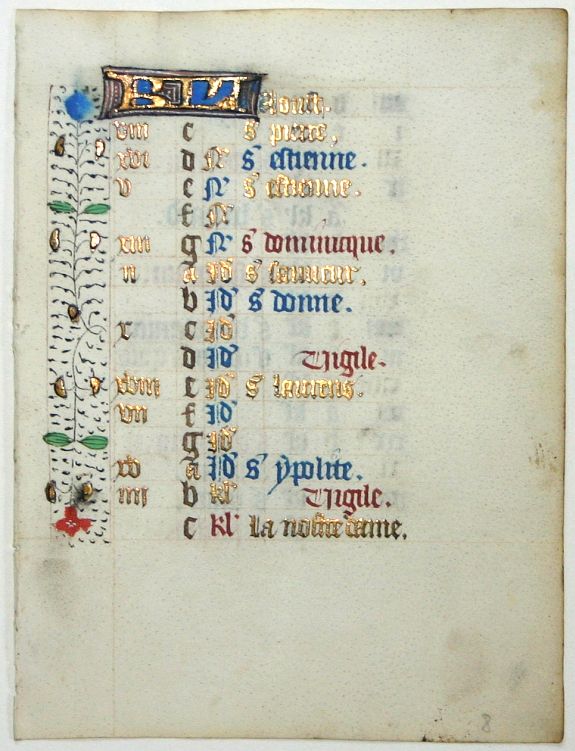 KL Aoust.
viii c s' pierre.
xvi d N' s' estienne.
v e N' s' estienne.
f N'
xiii g N' s' dominicque.
ii a Id' s' sauueur.
b Id' s' donne.
x c Id'
d Id' Vigile.
xviii e Id' s' laurens.
vii f Id'
g Id'
xv a Id' s' ypolite.
iiii b kl' Vigile.
c kl' La nostre dame.
8